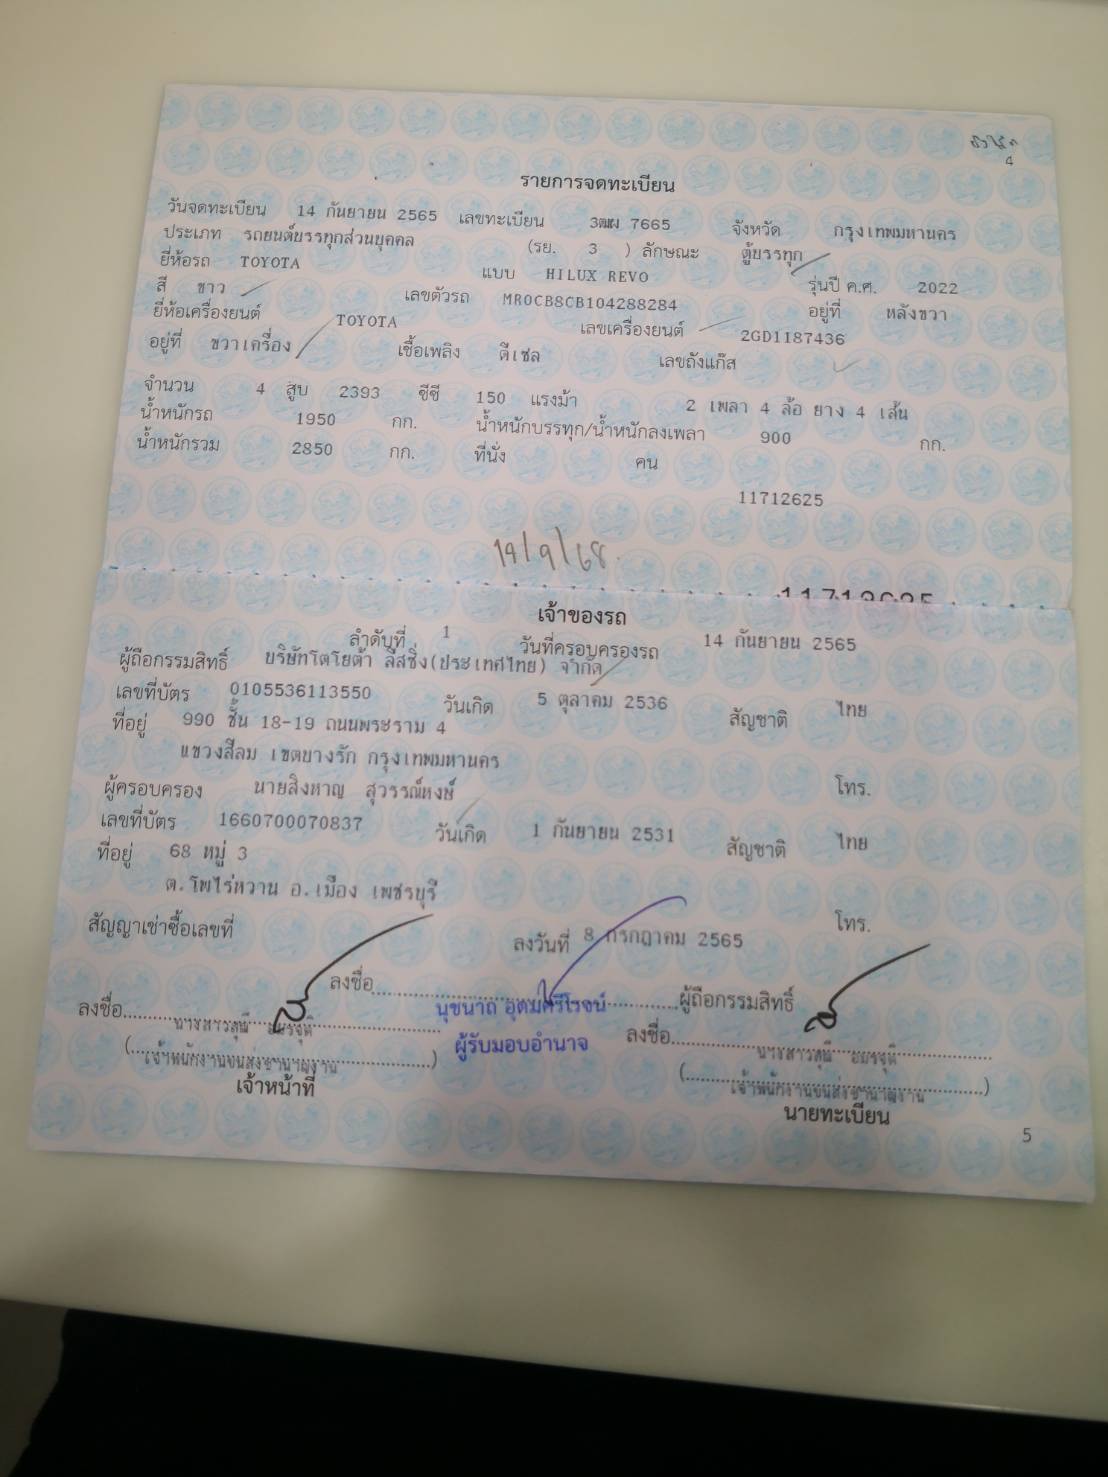 4
รายการจดทะเบียน
วันจดทะเบียน 14 กันยายน 2565 เลขทะเบียน 3ฒผ 7665 จังหวัด กรุงเทพมหานคร
ประเภท รถยนต์บรรทุกส่วนบุคคล (รย. 3 ) ลักษณะ ตู้บรรทุก
ยี่ห้อรถ TOYOTA แบบ HILUX REVO รุ่นปี ค.ศ. 2022
สี ขาว เลขตัวรถ MR0CB8CB104288284 อยู่ที่ หลังขวา
ยี่ห้อเครื่องยนต์ TOYOTA เลขเครื่องยนต์ 2GD1187436
อยู่ที่ ขวาเครื่อง เชื้อเพลิง ดีเซล เลขถังแก๊ส
จำนวน 4 สูบ 2393 ซีซี 150 แรงม้า 2 เพลา 4 ล้อ ยาง 4 เส้น
น้ำหนักรถ 1950 กก. น้ำหนักบรรทุก/น้ำหนักลงเพลา 900 กก.
น้ำหนักรวม 2850 กก. ที่นั่ง คน
11712625
14/9/68
11712625
เจ้าของรถ
ลำดับที่ 1 วันที่ครอบครองรถ 14 กันยายน 2565
ผู้ถือกรรมสิทธิ์ บริษัทโตโยต้า ลีสซิ่ง(ประเทศไทย) จำกัด
เลขที่บัตร 0105536113550 วันเกิด 5 ตุลาคม 2536 สัญชาติ ไทย
ที่อยู่ 990 ชั้น 18-19 ถนนพระราม 4
แขวงสีลม เขตบางรัก กรุงเทพมหานคร โทร.
ผู้ครอบครอง นายสิงหาญ สุวรรณ์หงษ์
เลขที่บัตร 1660700070837 วันเกิด 1 กันยายน 2531 สัญชาติ ไทย
ที่อยู่ 68 หมู่ 3
ต.โพไร่หวาน อ.เมือง เพชรบุรี โทร.
สัญญาเช่าซื้อเลขที่ ลงวันที่ 8 กรกฎาคม 2565
ลงชื่อ ผู้ถือกรรมสิทธิ์
นุชนาถ อุดมศรีโรจน์
ผู้รับมอบอำนาจ
ลงชื่อ ลงชื่อ
เจ้าพนักงานขนส่งชำนาญงาน เจ้าพนักงานขนส่งชำนาญงาน
เจ้าหน้าที่ นายทะเบียน
5